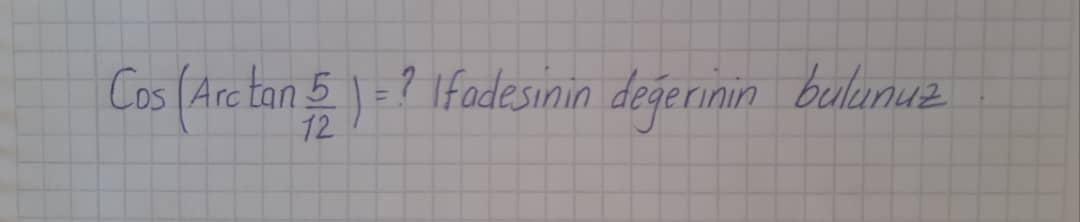 Cos(Arctan 5/12) = ? Ifadesinin değerinin bulunuz.